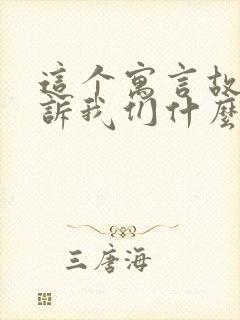 這个寓言故
訴我们什麼
三唐海